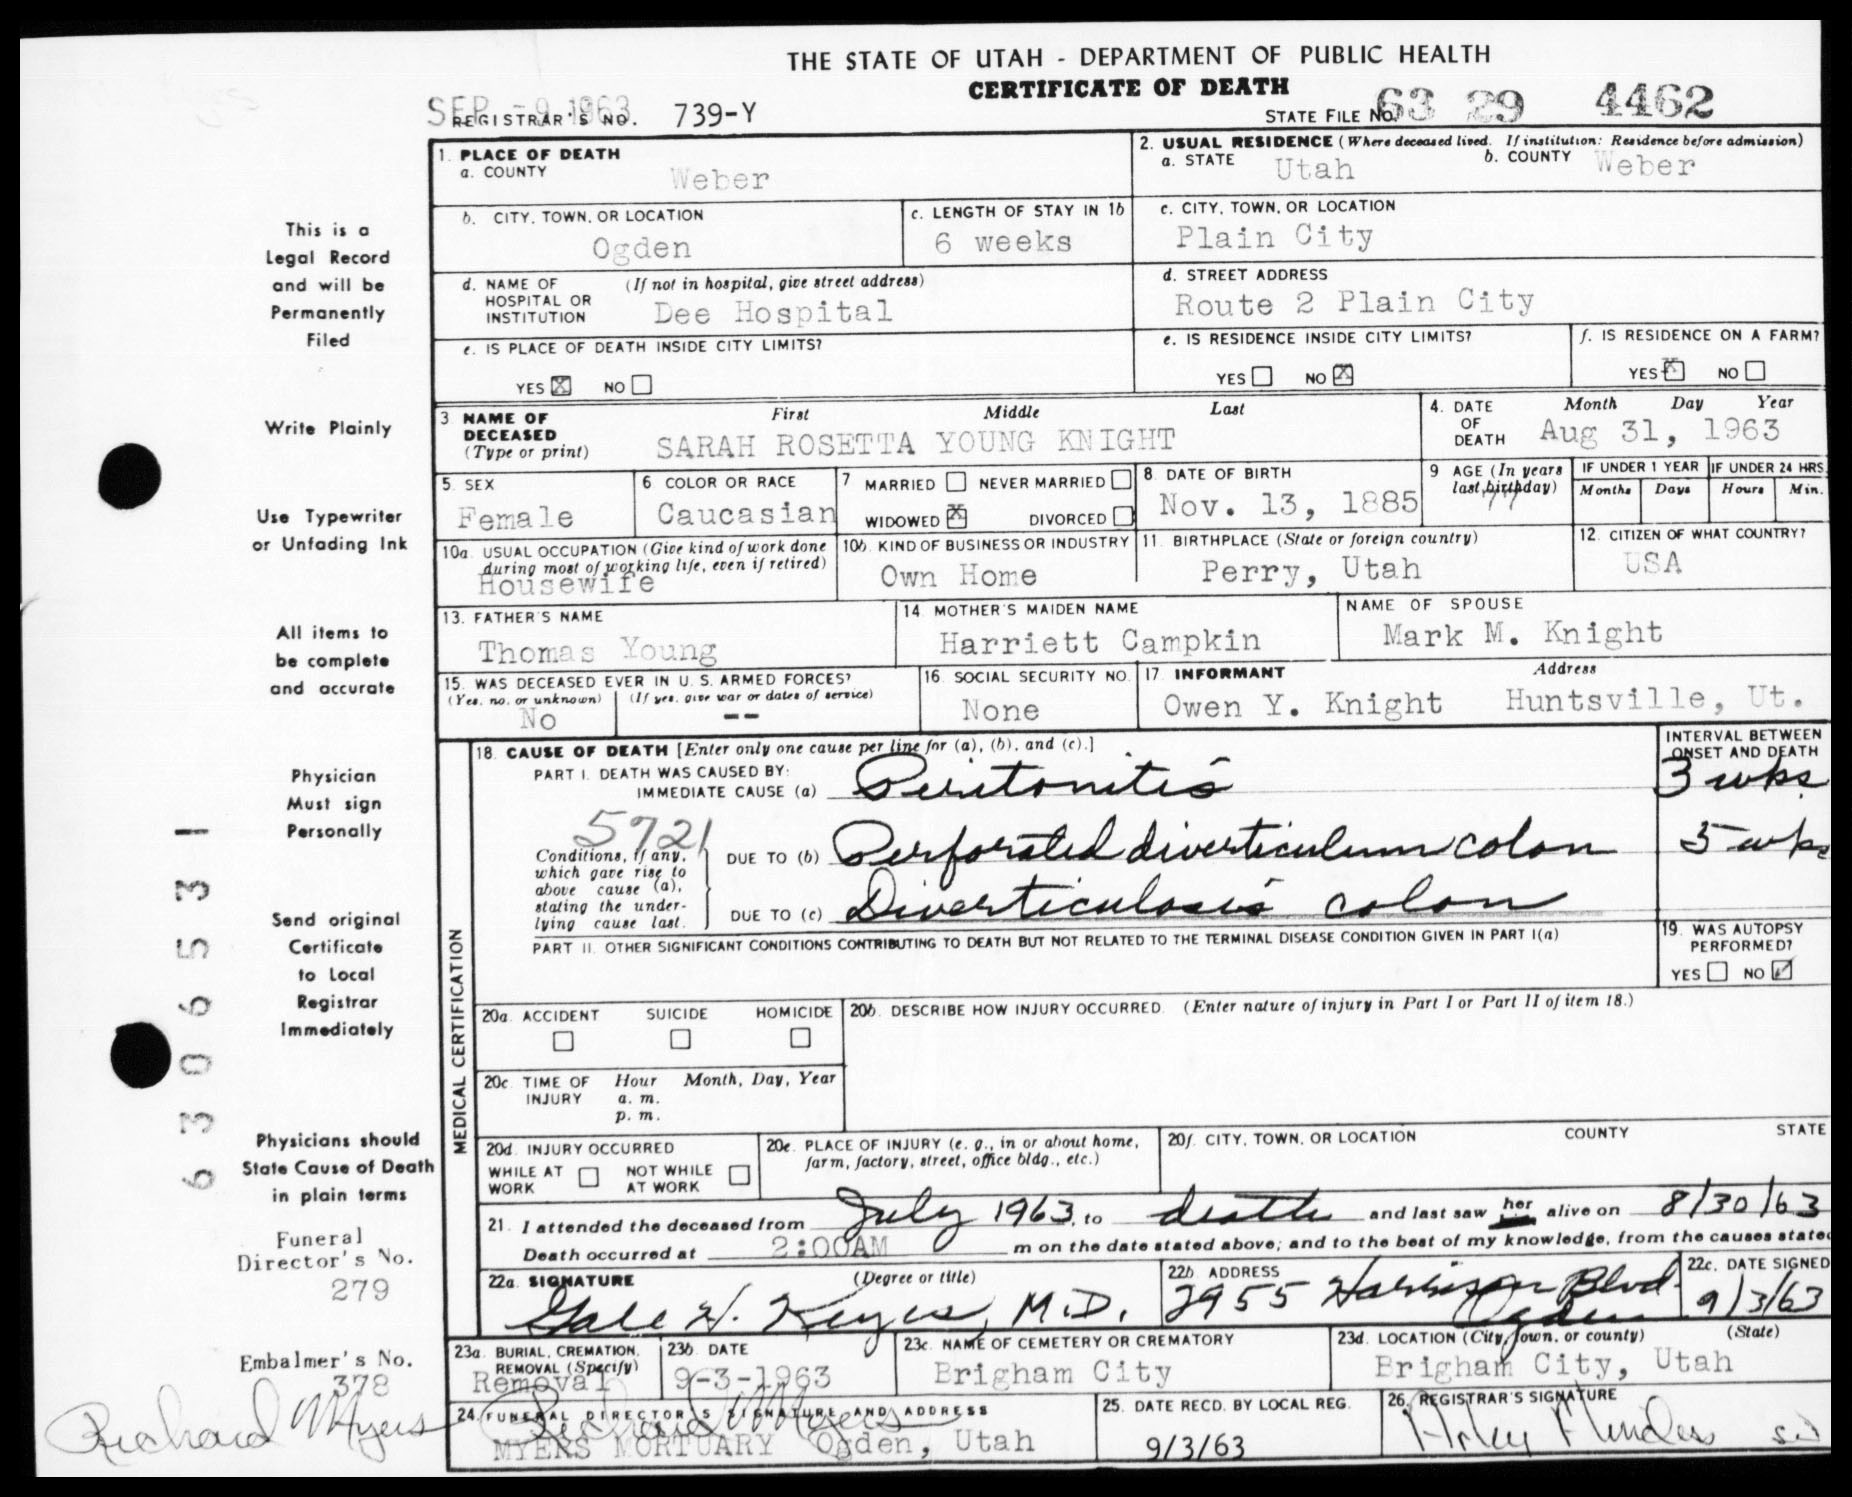 THE STATE OF UTAH - DEPARTMENT OF PUBLIC HEALTH
CERTIFICATE OF DEATH
SEP -9 1963
REGISTRAR'S NO. 739-Y
STATE FILE NO. 63 29 4462
1. PLACE OF DEATH
a. COUNTY Weber
2. USUAL RESIDENCE (Where deceased lived. If institution: Residence before admission)
a. STATE Utah b. COUNTY Weber
b. CITY, TOWN, OR LOCATION
Ogden
c. LENGTH OF STAY IN 1b
6 weeks
c. CITY, TOWN, OR LOCATION
Plain City
d. NAME OF HOSPITAL OR INSTITUTION (If not in hospital, give street address)
Dee Hospital
d. STREET ADDRESS
Route 2 Plain City
e. IS PLACE OF DEATH INSIDE CITY LIMITS?
YES X NO
e. IS RESIDENCE INSIDE CITY LIMITS?
YES NO X
f. IS RESIDENCE ON A FARM?
YES X NO
3 NAME OF DECEASED (Type or print) First Middle Last
SARAH ROSETTA YOUNG KNIGHT
4. DATE OF DEATH Month Day Year
Aug 31, 1963
5. SEX
Female
6 COLOR OR RACE
Caucasian
7 MARRIED NEVER MARRIED
WIDOWED X DIVORCED
8. DATE OF BIRTH
Nov. 13, 1885
9 AGE (In years last birthday)
77
IF UNDER 1 YEAR IF UNDER 24 HRS.
Months Days Hours Min.
10a. USUAL OCCUPATION (Give kind of work done during most of working life, even if retired)
Housewife
10b. KIND OF BUSINESS OR INDUSTRY
Own Home
11. BIRTHPLACE (State or foreign country)
Perry, Utah
12. CITIZEN OF WHAT COUNTRY?
USA
13. FATHER'S NAME
Thomas Young
14 MOTHER'S MAIDEN NAME
Harriett Campkin
NAME OF SPOUSE
Mark M. Knight
15. WAS DECEASED EVER IN U. S. ARMED FORCES?
(Yes, no, or unknown) (If yes, give war or dates of service)
No --
16. SOCIAL SECURITY NO.
None
17. INFORMANT Address
Owen Y. Knight Huntsville, Ut.
MEDICAL CERTIFICATION
18. CAUSE OF DEATH [Enter only one cause per line for (a), (b), and (c).]
INTERVAL BETWEEN ONSET AND DEATH
PART I. DEATH WAS CAUSED BY:
IMMEDIATE CAUSE (a) Peritonitis 3 wks
5721
Conditions, if any, which gave rise to above cause (a), stating the underlying cause last.
DUE TO (b) Perforated diverticulum colon 5 wks
DUE TO (c) Diverticulosis colon
PART II. OTHER SIGNIFICANT CONDITIONS CONTRIBUTING TO DEATH BUT NOT RELATED TO THE TERMINAL DISEASE CONDITION GIVEN IN PART I(a)
19. WAS AUTOPSY PERFORMED?
YES NO ✓
20a. ACCIDENT SUICIDE HOMICIDE
20b. DESCRIBE HOW INJURY OCCURRED. (Enter nature of injury in Part I or Part II of item 18.)
20c. TIME OF INJURY Hour Month, Day, Year
a. m.
p. m.
20d. INJURY OCCURRED
WHILE AT WORK NOT WHILE AT WORK
20e. PLACE OF INJURY (e. g., in or about home, farm, factory, street, office bldg., etc.)
20f. CITY, TOWN, OR LOCATION COUNTY STATE
21. I attended the deceased from July 1963, to death and last saw her alive on 8/30/63
Death occurred at 2:00AM m on the date stated above; and to the best of my knowledge, from the causes stated
22a. SIGNATURE (Degree or title)
Gale H. Keyes, M.D.
22b. ADDRESS
2955 Harrison Blvd.
Ogden
22c. DATE SIGNED
9/3/63
23a. BURIAL, CREMATION, REMOVAL (Specify)
Removal
23b. DATE
9-3-1963
23c. NAME OF CEMETERY OR CREMATORY
Brigham City
23d. LOCATION (City, town, or county) (State)
Brigham City, Utah
24. FUNERAL DIRECTOR'S SIGNATURE AND ADDRESS
Richard Myers
MYERS MORTUARY Ogden, Utah
25. DATE RECD. BY LOCAL REG.
9/3/63
26. REGISTRAR'S SIGNATURE
This is a
Legal Record
and will be
Permanently
Filed
Write Plainly
Use Typewriter
or Unfading Ink
All items to
be complete
and accurate
Physician
Must sign
Personally
Send original
Certificate
to Local
Registrar
Immediately
Physicians should
State Cause of Death
in plain terms
Funeral
Director's No.
279
Embalmer's No.
378
Richard Myers
6306531